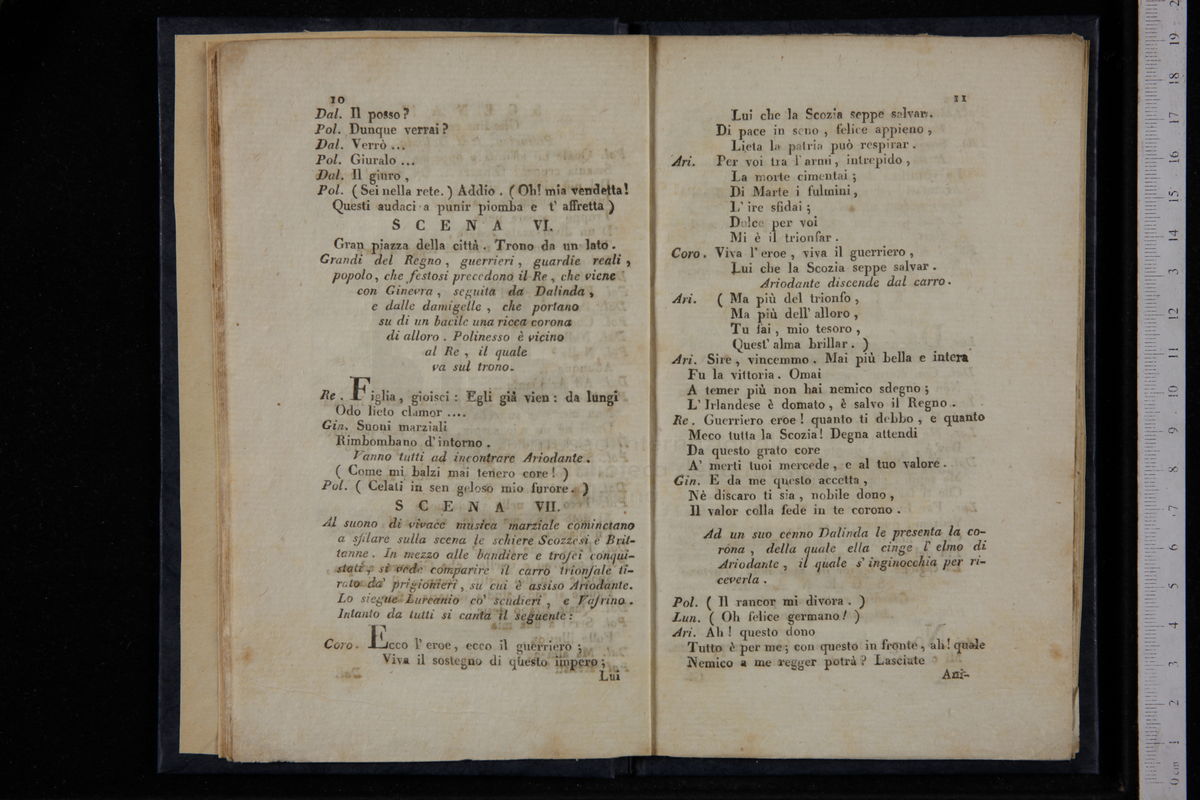 10
Dal. Il posso?
Pol. Dunque verrai?
Dal. Verrò ...
Pol. Giuralo ...
Dal. Il giuro,
Pol. ( Sei nella rete. ) Addio. ( Oh! mia vendetta!
Questi audaci a punir piomba e t' affretta )
SCENA VI.
Gran piazza della città. Trono da un lato.
Grandi del Regno, guerrieri, guardie reali,
popolo, che festosi precedono il Re, che viene
con Ginevra, seguita da Dalinda,
e dalle damigelle, che portano
su di un bacile una ricca corona
di alloro. Polinesso è vicino
al Re, il quale
va sul trono.
Re. Figlia, gioisci: Egli già vien: da lungi
Odo lieto clamor ....
Gin. Suoni marziali
Rimbombano d'intorno.
Vanno tutti ad incontrare Ariodante.
( Come mi balzi mai tenero core! )
Pol. ( Celati in sen geloso mio furore. )
SCENA VII.
Al suono di vivace musica marziale cominciano
a sfilare sulla scena le schiere Scozzesi e Brit-
tanne. In mezzo alle bandiere e trofei conqui-
stati, si vede comparire il carro trionfale ti-
rato da' prigionieri, su cui è assiso Ariodante.
Lo siegue Lurcanio co' scudieri, e Vafrino.
Intanto da tutti si canta il seguente:
Coro. Ecco l'eroe, ecco il guerriero;
Viva il sostegno di questo impero;
Lui
11
Lui che la Scozia seppe salvar.
Di pace in seno, felice appieno,
Lieta la patria può respirar.
Ari. Per voi tra l'armi, intrepido,
La morte cimentai;
Di Marte i fulmini,
L'ire sfidai;
Dolce per voi
Mi è il trionfar.
Coro. Viva l'eroe, viva il guerriero,
Lui che la Scozia seppe salvar.
Ariodante discende dal carro.
Ari. ( Ma più del trionfo,
Ma più dell'alloro,
Tu fai, mio tesoro,
Quest'alma brillar. )
Ari. Sire, vincemmo. Mai più bella e intera
Fu la vittoria. Omai
A temer più non hai nemico sdegno;
L'Irlandese è domato, è salvo il Regno.
Re. Guerriero eroe! quanto ti debbo, e quanto
Meco tutta la Scozia! Degna attendi
Da questo grato core
A' merti tuoi mercede, e al tuo valore.
Gin. E da me questo accetta,
Nè discaro ti sia, nobile dono,
Il valor colla fede in te corono.
Ad un suo cenno Dalinda le presenta la co-
rona, della quale ella cinge l'elmo di
Ariodante, il quale s'inginocchia per ri-
ceverla.
Pol. ( Il rancor mi divora. )
Lun. ( Oh felice germano! )
Ari. Ah! questo dono
Tutto è per me; con questo in fronte, ah! quale
Nemico a me regger potrà? Lasciate
Ani-